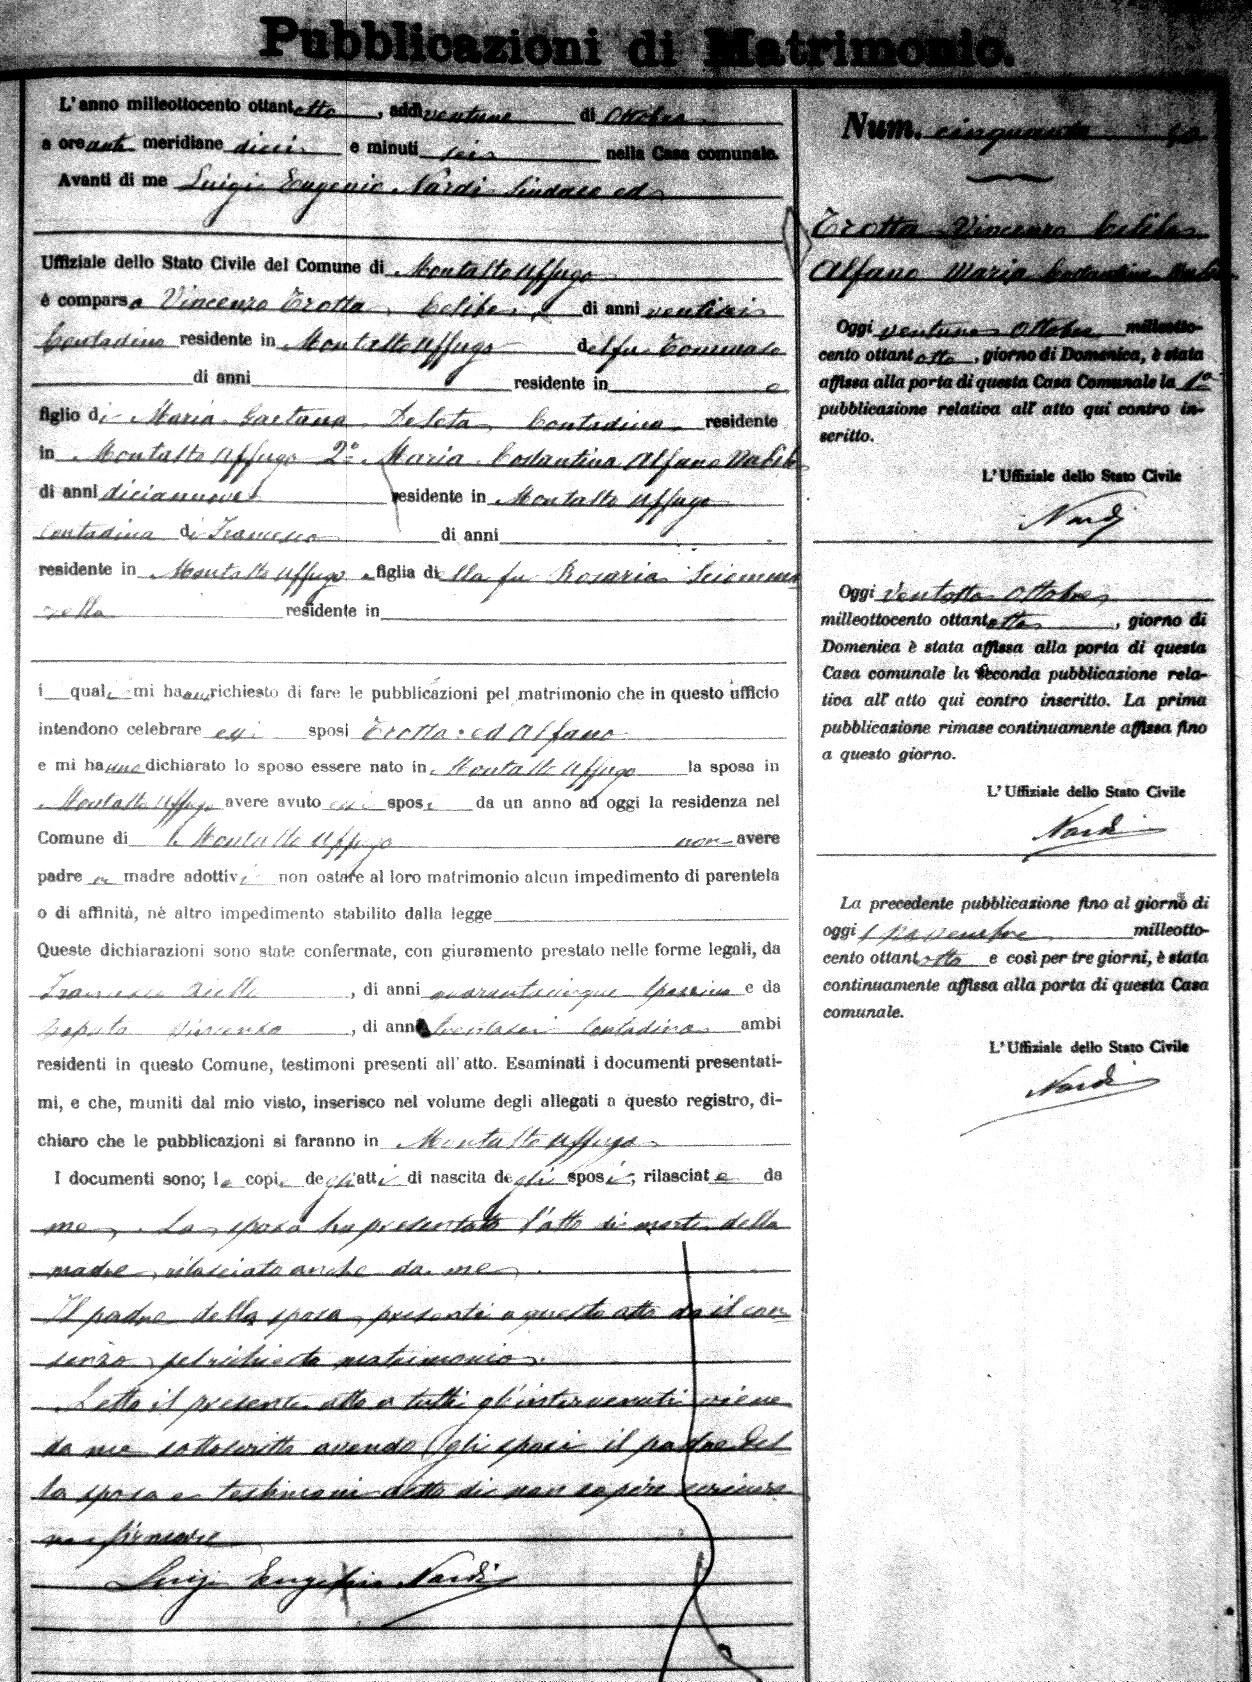 Pubblicazioni di Matrimonio.
L'anno milleottocento ottantotto, addì ventuno di Ottobre
a ore anti meridiane dieci e minuti seis nella Casa comunale.
Avanti di me Luigi Eugenio Nardi Sindaco ed
Uffiziale dello Stato Civile del Comune di Montalto Uffugo
è comparso Vincenzo Trotta, Celibe, di anni ventisei
Contadino residente in Montalto Uffugo del fu Tommaso
di anni residente in e
figlio di Maria Gaetana DeSeta Contadina residente
in Montalto Uffugo 2° Maria Costantina Alfano Nubile
di anni diciannove residente in Montalto Uffugo
Contadina di Francesco di anni
residente in Montalto Uffugo figlia di ella fu Rosaria
residente in
i quali mi hanno richiesto di fare le pubblicazioni pel matrimonio che in questo ufficio
intendono celebrare essi sposi Trotta ed Alfano
e mi hanno dichiarato lo sposo essere nato in Montalto Uffugo la sposa in
Montalto Uffugo avere avuto essi sposi da un anno ad oggi la residenza nel
Comune di Montalto Uffugo non avere
padre o madre adottivi non ostare al loro matrimonio alcun impedimento di parentela
o di affinità, nè altro impedimento stabilito dalla legge
Queste dichiarazioni sono state confermate, con giuramento prestato nelle forme legali, da
Francesco Aiello, di anni quarantacinque e da
Caputo Vincenzo, di anni Contadino ambi
residenti in questo Comune, testimoni presenti all'atto. Esaminati i documenti presentati-
mi, e che, muniti dal mio visto, inserisco nel volume degli allegati a questo registro, di-
chiaro che le pubblicazioni si faranno in Montalto Uffugo
I documenti sono; le copie degli atti di nascita degli sposi; rilasciate da
me. La sposa ha presentato l'atto di morte della
madre rilasciato anche da me.
Il padre della sposa presente a questo atto da il con
senzo pel richiesto matrimonio.
Letto il presente atto a tutti gl'intervenuti viene
da me sottoscritto avendo gli sposi il padre del
la sposa e testimoni detto di non sapere scrivere
ne firmare
Luigi Eugenio Nardi
Num. cinquanta 50
Trotta Vincenzo Celibe
Alfano Maria Costantina Nubile
Oggi ventuno Ottobre milleotto-
cento ottantotto, giorno di Domenica, è stata
affissa alla porta di questa Casa Comunale la 1a
pubblicazione relativa all'atto qui contro in-
scritto.
L'Uffiziale dello Stato Civile
Nardi
Oggi Ventotto Ottobre
milleottocento ottantotto, giorno di
Domenica è stata affissa alla porta di questa
Casa comunale la seconda pubblicazione rela-
tiva all'atto qui contro inscritto. La prima
pubblicazione rimase continuamente affissa fino
a questo giorno.
L'Uffiziale dello Stato Civile
Nardi
La precedente pubblicazione fino al giorno di
oggi 1 Novembre milleotto-
cento ottantotto e così per tre giorni, è stata
continuamente affissa alla porta di questa Casa
comunale.
L'Uffiziale dello Stato Civile
Nardi